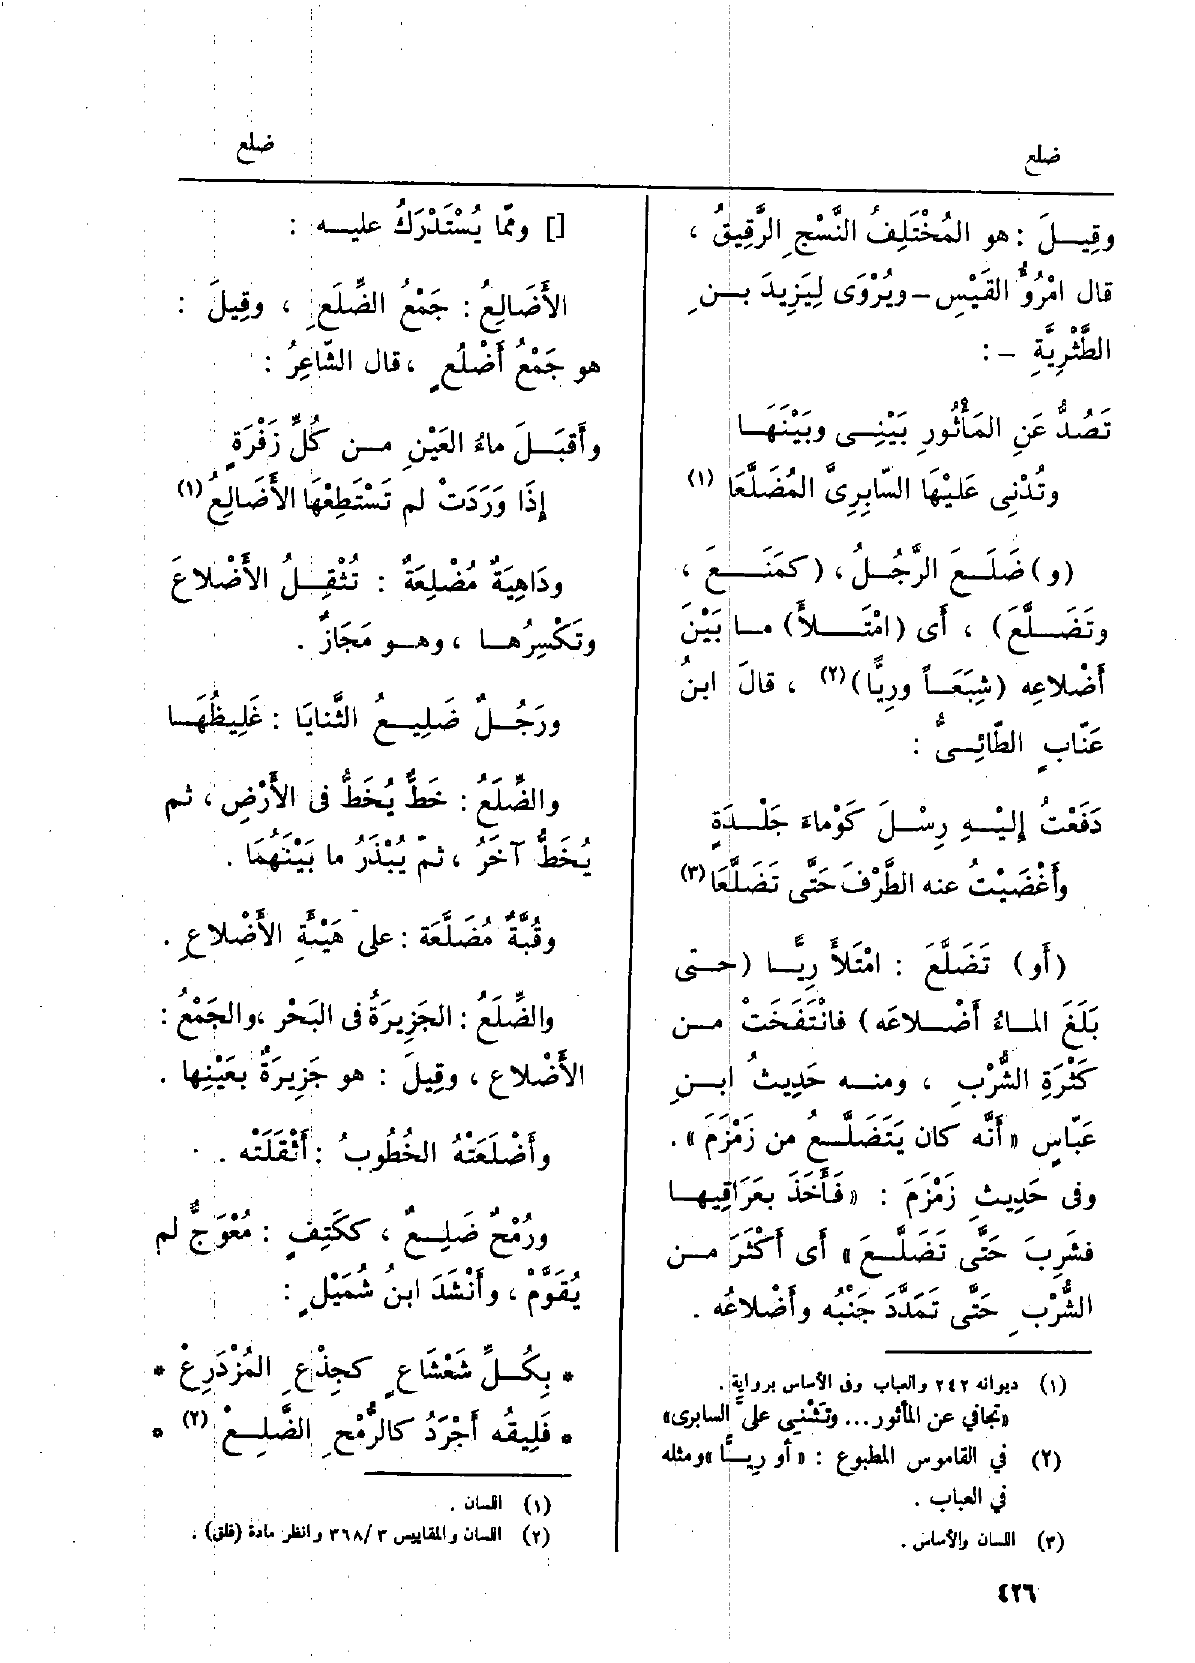 ضلع
ضلع
وقِيلَ : هو المُخْتَلِفُ النَّسْجِ الرَّقِيقُ ،
قال امْرُؤُ القَيْسِ – ويُرْوَى لِيَزِيدَ بنِ
الطَّثْرِيَّةِ – :
تَصُدُّ عَنِ المَأْثُورِ بَيْنِى وبَيْنَهَا
وتُدْنِى عَلَيْهَا السّابِرِىَّ المُضَلَّعَا (١)
(و) ضَلَعَ الرَّجُلُ ، (كمَنَعَ ،
وتَضَلَّعَ) ، أَى (امْتَلأَ) ما بَيْنَ
أَضْلاعِه (شِبَعَاً ورِيًّا) (٢) ، قالَ ابنُ
عَنّابٍ الطّائِىُّ :
دَفَعْتُ إِلَيْهِ رِسْلَ كَوْماءَ جَلْدَةٍ
وأَغْضَيْتُ عنه الطَّرْفَ حَتَّى تَضَلَّعَا (٣)
(أَو) تَضَلَّعَ : امْتَلأَ رِيًّا (حتى
بَلَغَ الماءُ أَضْلاعَه) فانْتَفَخَتْ من
كَثْرَةِ الشُّرْبِ ، ومنه حَدِيثُ ابنِ
عَبّاسٍ «أَنَّه كان يَتَضَلَّعُ من زَمْزَمَ» .
وفى حَدِيثِ زَمْزَمَ : «فَأَخَذَ بعَرَاقِيها
فشَرِبَ حَتَّى تَضَلَّعَ» أَى أَكْثَرَ من
الشُّرْبِ حَتَّى تَمَدَّدَ جَنْبُه وأَضْلاعُه .
(١) ديوانه ٢٤٢ والعباب وفى الأساس برواية .
«تجافي عن المأثور ... وتَثْنِي على السابرى»
(٢) في القاموس المطبوع : «أو رِيًّا» ومثله
في العباب .
(٣) اللسان والأساس .
[] وممّا يُسْتَدْرَكُ عليه :
الأَضَالِعُ : جَمْعُ الضِّلَعِ ، وقِيلَ :
هو جَمْعُ أَضْلُعٍ ، قال الشّاعِرُ :
وأَقبَلَ ماءُ العَيْنِ من كُلِّ زَفْرَةٍ
إِذَا وَرَدَتْ لم تَسْتَطِعْهَا الأَضَالِعُ (١)
ودَاهِيَةٌ مُضْلِعَةٌ : تُثْقِلُ الأَضْلاعَ
وتَكْسِرُها ، وهو مَجَازٌ .
ورَجُلٌ ضَلِيعُ الثَّنايَا : غَلِيظُهَا
والضِّلَعُ : خَطٌّ يُخَطُّ فى الأَرْضِ ، ثم
يُخَطُّ آخَرُ ، ثمّ يُبْذَرُ ما بَيْنَهُمَا .
وقُبَّةٌ مُضَلَّعَة : على هَيْئَةِ الأَضْلاعِ .
والضِّلَعُ : الجَزِيرَةُ فى البَحْر ، والجَمْعُ :
الأَضْلاع ، وقِيلَ : هو جَزِيرَةٌ بعَيْنِها .
وأَضْلَعَتْهُ الخُطُوبُ : أَثْقَلَتْه .
ورُمْحٌ ضَلِعٌ ، ككَتِفٍ : مُعْوَجٌّ لم
يُقَوَّمْ ، وأَنْشَدَ ابنُ شُمَيْلٍ :
* بِكُلِّ شَعْشَاعٍ كجِذْعِ المُزْدَرِعْ *
* فَلِيقُه أَجْرَدُ كالرُّمْحِ الضَّلِعْ (٢) *
(١) اللسان .
(٢) اللسان والمقاييس ٣/ ٣٦٨ وانظر مادة (فلق) .
٤٢٦